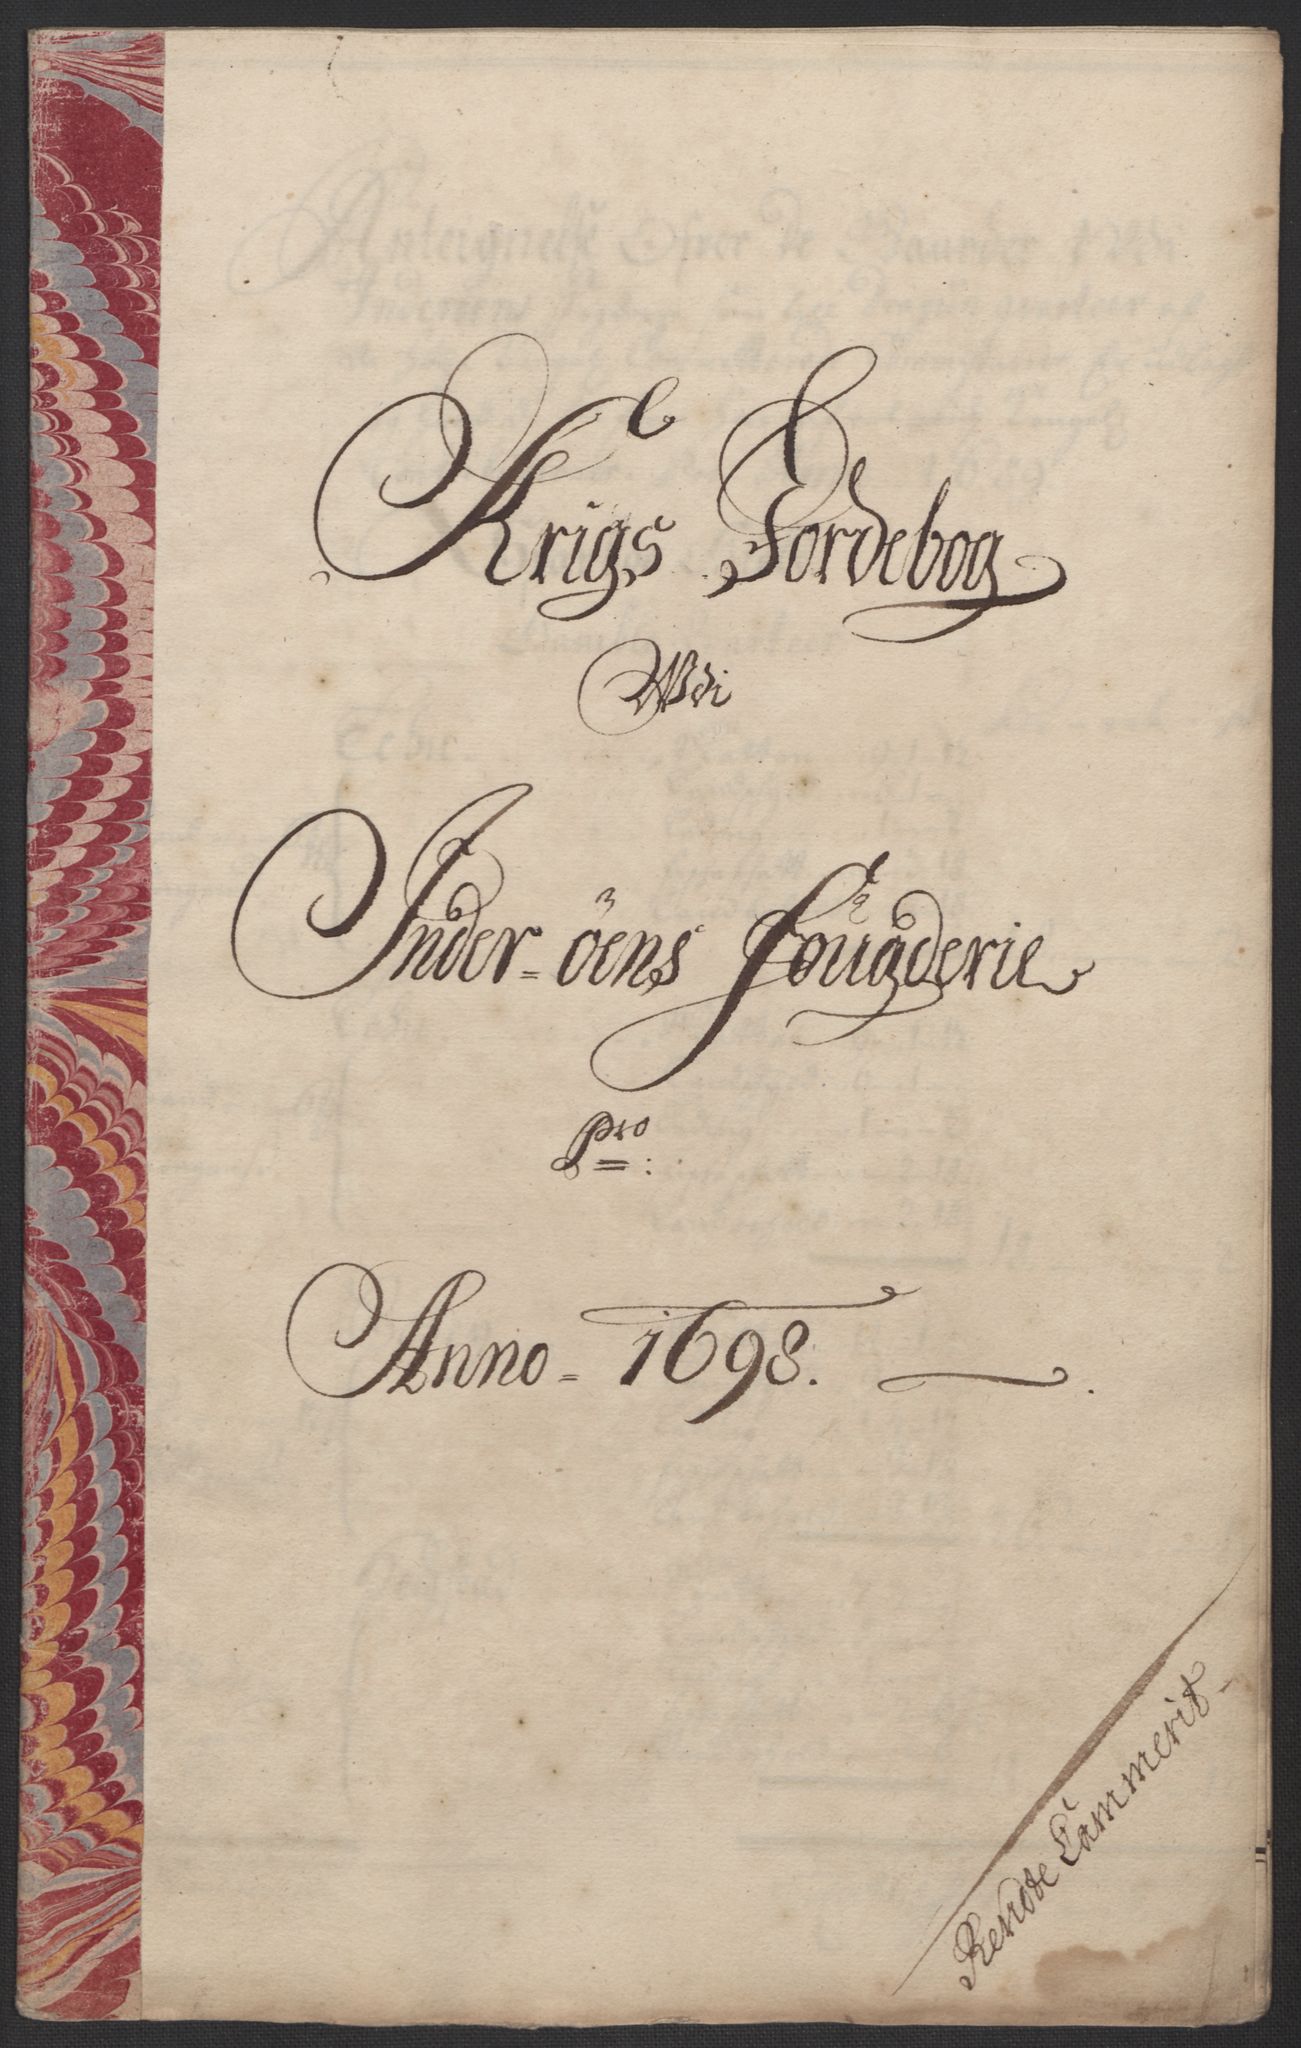 Krigs Jordebog
Udi
Inder-öens fougderie
Pro:
Anno-1698.
Rendte Cammerit